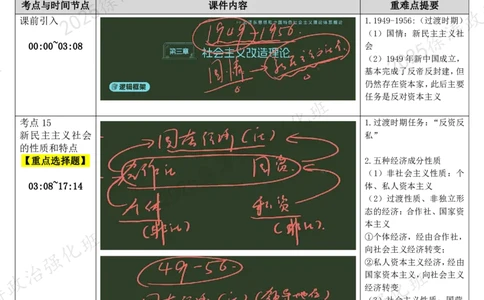 考点与时间节点
课件内容
重难点提要
课前引入
00:00~03:08
1949-1956
第三章 社会主义改造理论
逻辑框架
1.1949-1956:（过渡时期）
（1）国情：新民主主义社
会
（2）1949 年新中国成立，
基本完成了反帝反封建，但
仍然存在资本家，此后主要
任务是反对资本主义
考点 15
新民主主义社会
的性质和特点
【重点选择题】
03:08~17:14
国营经济（社）
合作社
国资
个体
私资
（非社）
（非社）
49-56
1.过渡时期任务：“反资反
私”
2.五种经济成分性质
（1）非社会主义性质：个
体、私人资本主义
（2）过渡性质、非独立形
态的经济：合作社、国家资
本主义
①个体经济，经由合作社，
向社会主义经济转变；
②私人资本主义经济，经由
国家资本主义，向社会主义
经济转变